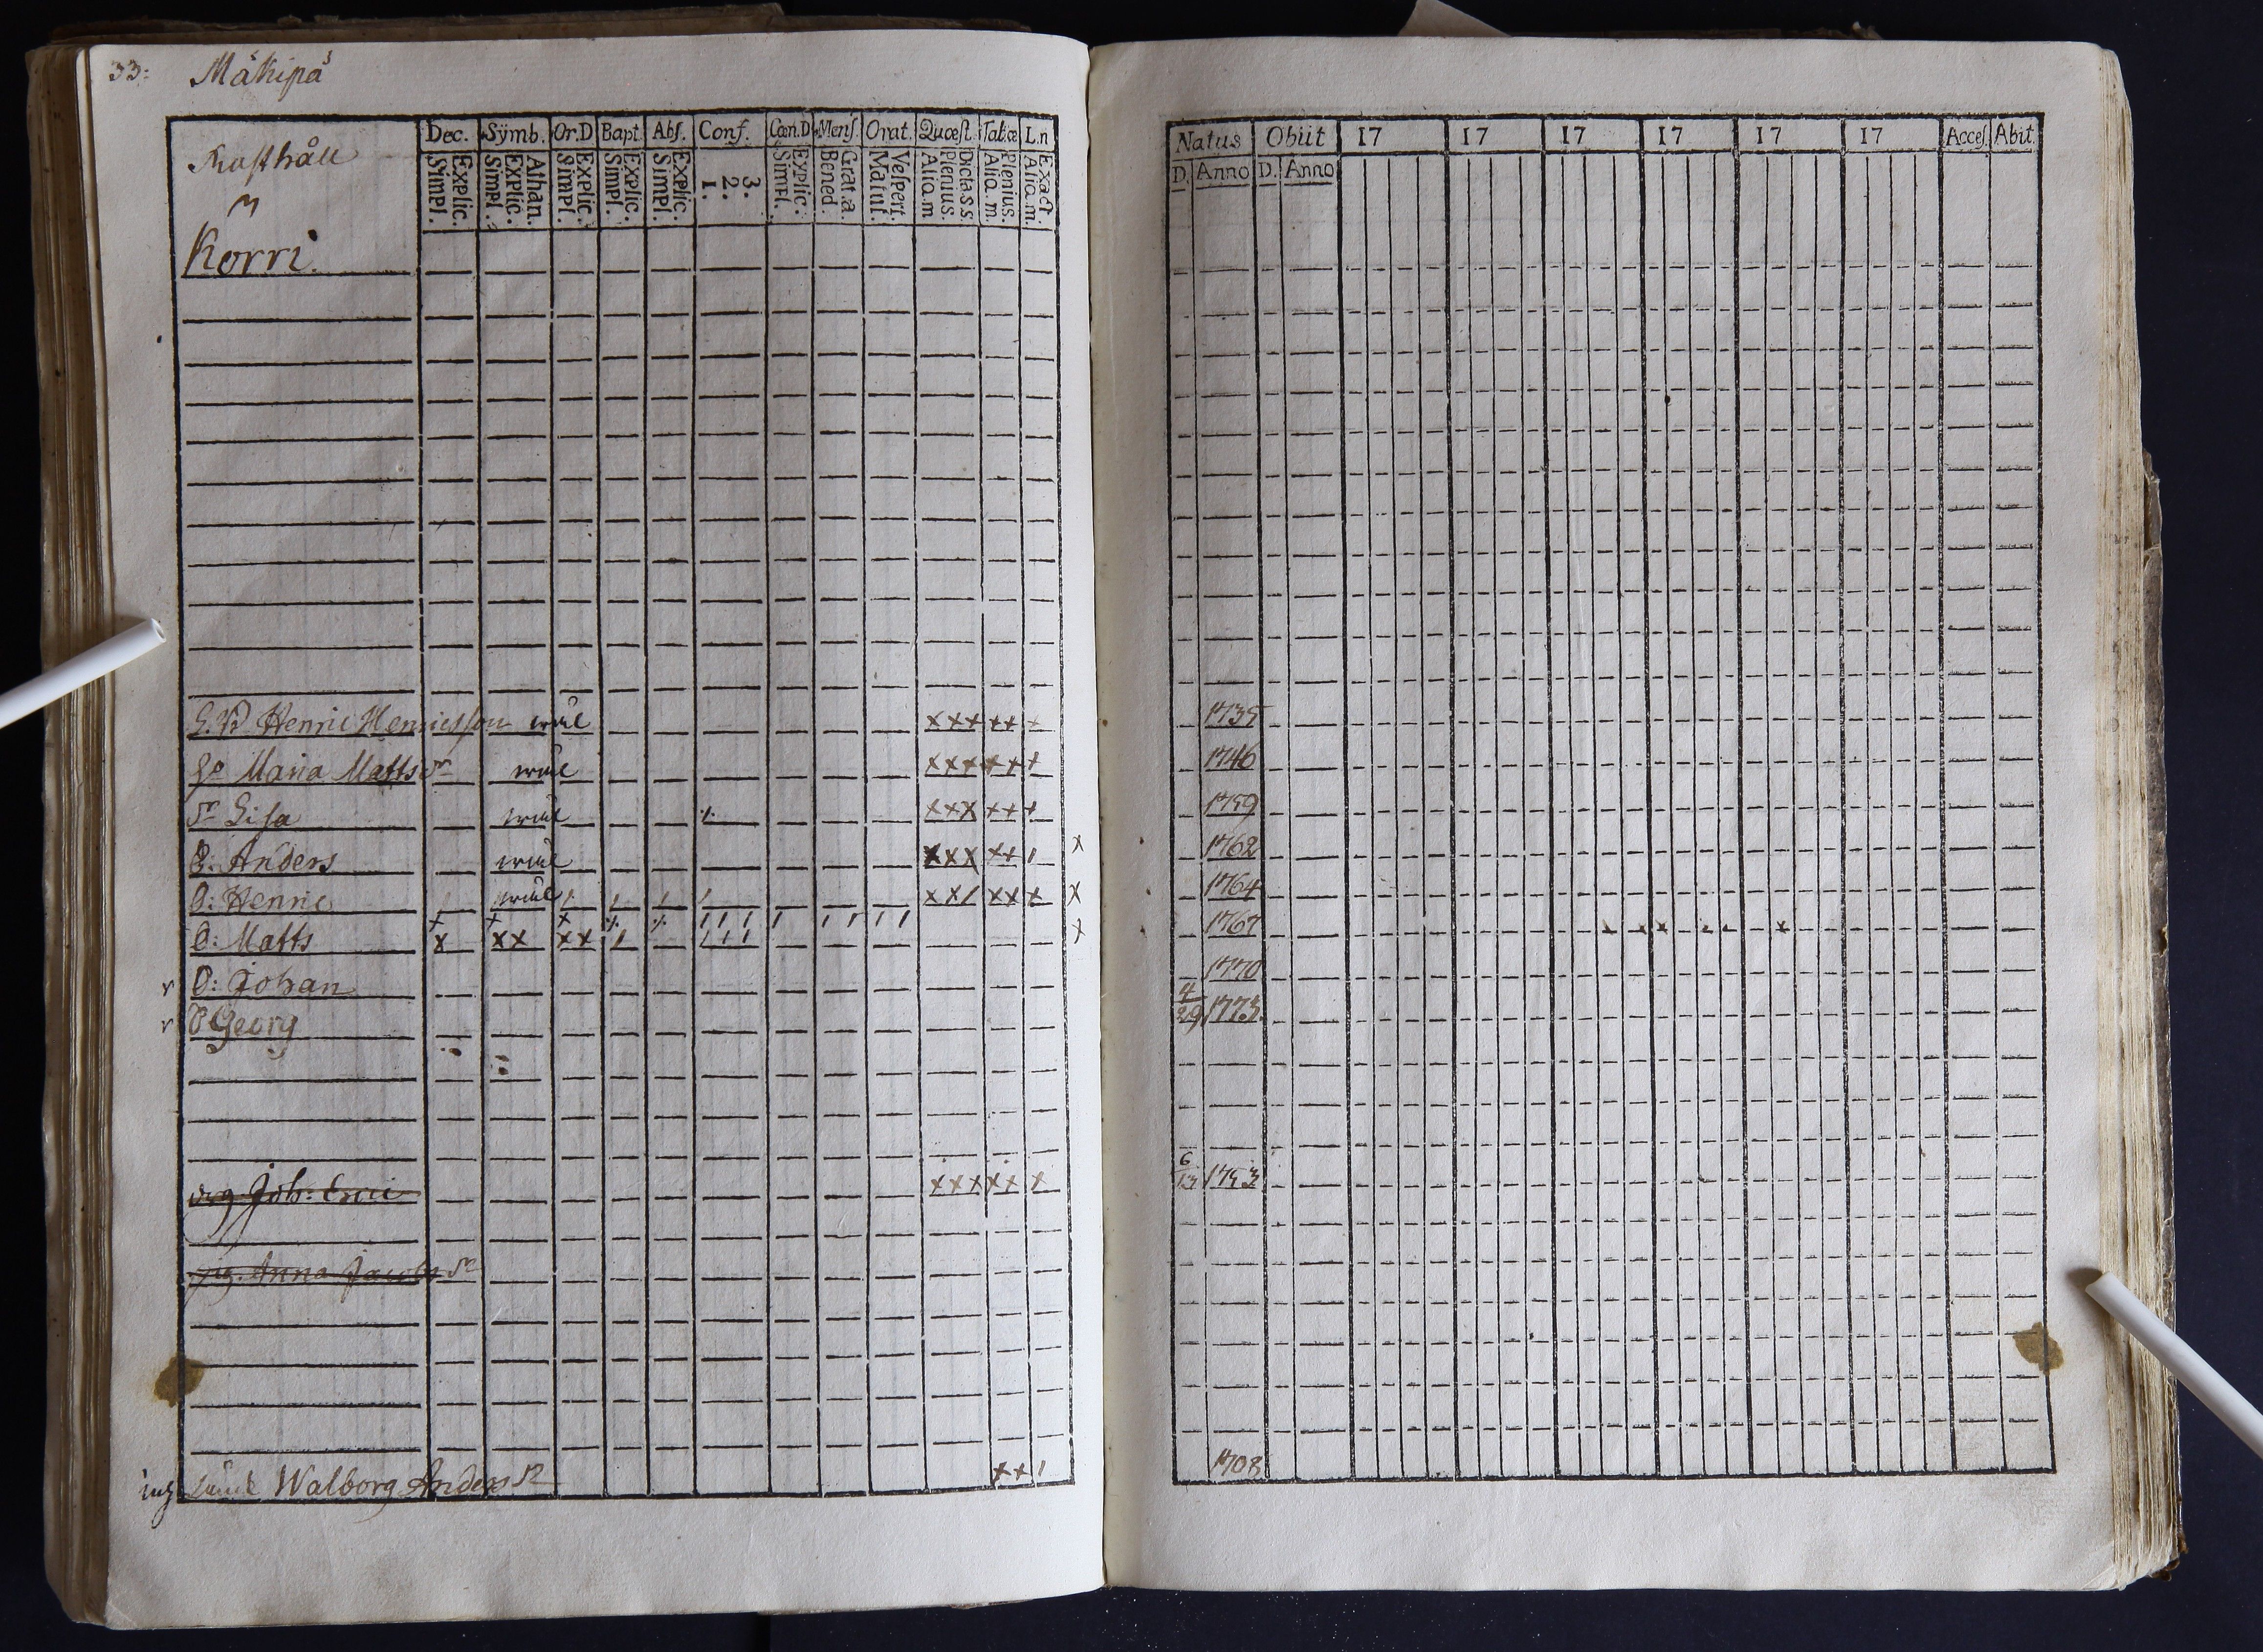 33: Mäkipä
Dec. Sÿmb. Or.D Bapt. Abſ. Conf. Cœn.D Menſ. Orat. Quœſt. Tab.œ L.n
Explic. Simpl. Athan. Explic. Simpl. Explic. Simpl. Explic. Simpl. Explic. Simpl. 3. 2. 1. Explic. Simpl. Grat.a. Bened. Veſpert. Matut. Dicta s.s. Plenius. Aliq.m Plenius. Aliq.m. Exact. Aliq.m.
Natus Obiit 17 17 17 17 17 17 Acceſ. Abit.
D. Anno D. Anno
Korri.
Henric Henricsson 1735
Maria Matts dr 1746
dr Lisa 1759
S: Anders 1762
S: Henric 1764
S: Matts 1767
r S: Johan 1770
r S Georg 4/29 1773.
Joh: Eric 6/13 1753
Anna Jacobs dr
inh Walborg Anders dr 1708